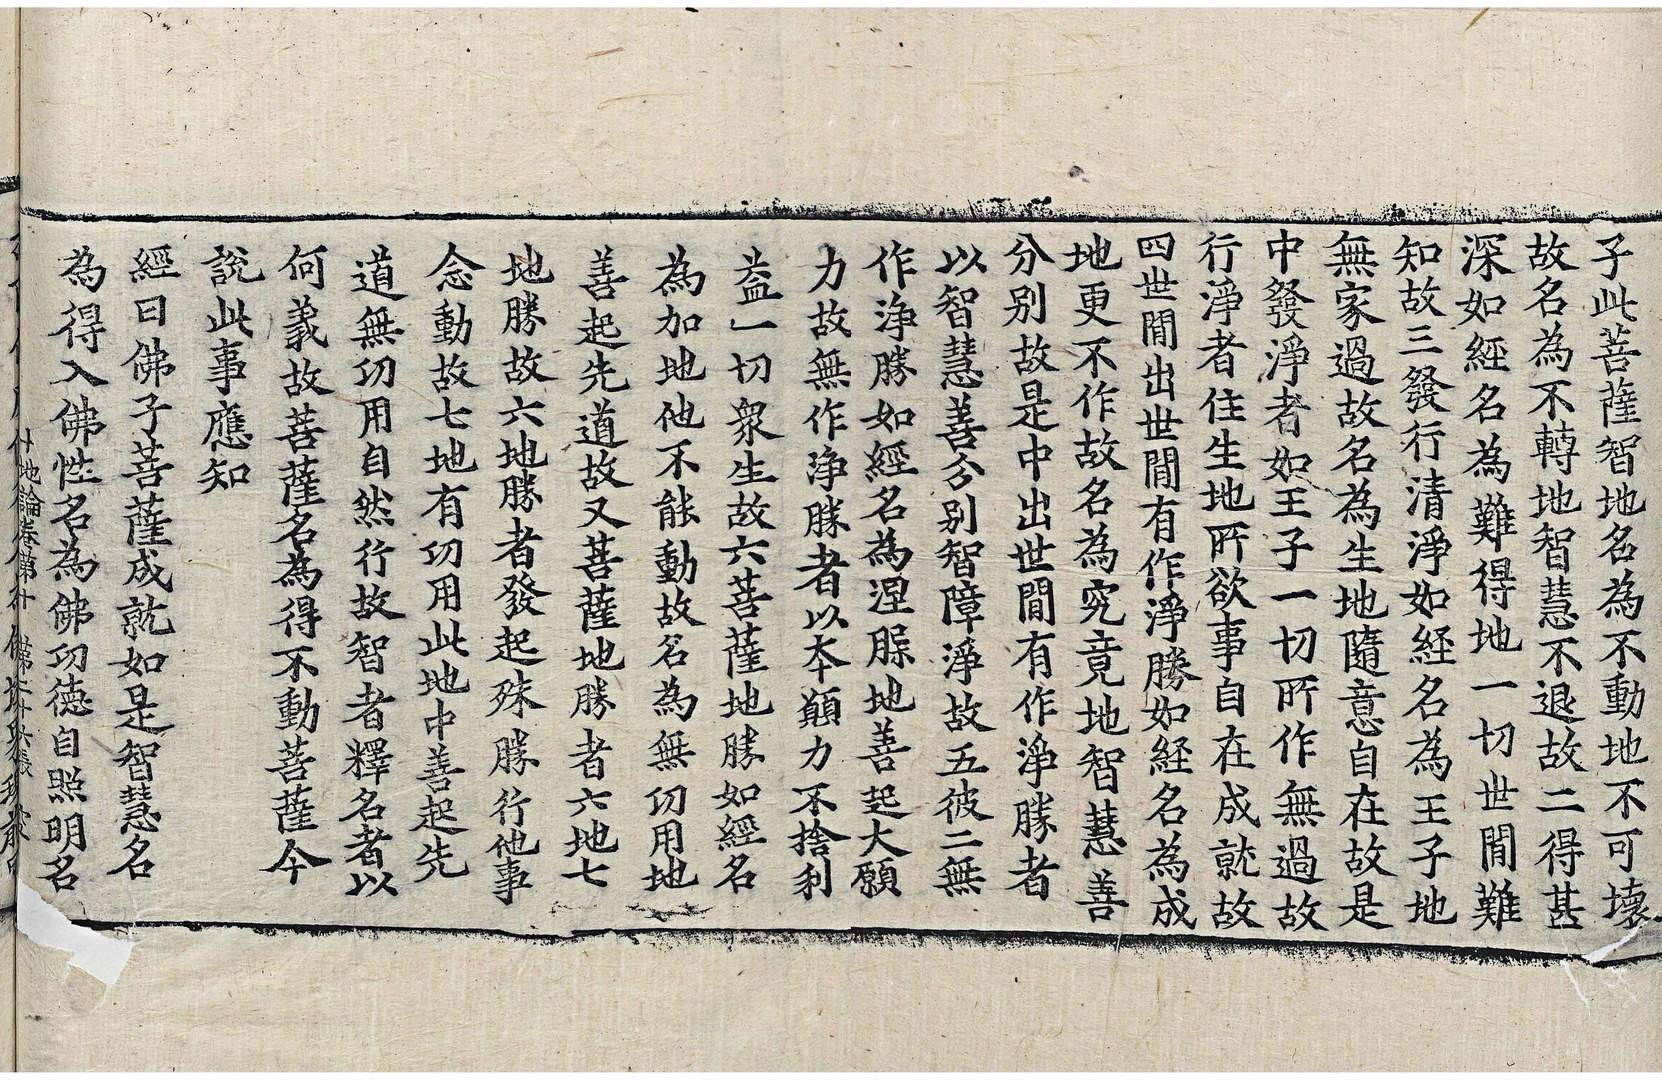 子此菩薩智地名為不動地不可壞
故名為不轉地智慧不退故二得甚
深如經名為難得地一切世間難
知故三發行清淨如経名為王子地
無家過故名為生地隨意自在故是
中發淨者如王子一切所作無過故
行淨者住生地所欲事自在成就故
四世間出世間有作淨勝如経名為成
地更不作故名為究竟地智慧善
分別故是中出世間有作淨勝者
以智慧善分別智障淨故五彼二無
作淨勝如經名為涅槃地善起大願
力故無作淨勝者以本願力不捨利
益一切眾生故六菩薩地勝如經名
為加地他不能動故名為無功用地
善起先道故又菩薩地勝者六地七
地勝故六地勝者發起殊勝行他事
念動故七地有功用此地中善起先
道無功用自然行故智者釋名者以
何義故菩薩名為得不動菩薩今
說此事應知
經曰佛子菩薩成就如是智慧名
為得入佛性名為佛功德自照明名
十地論卷第十